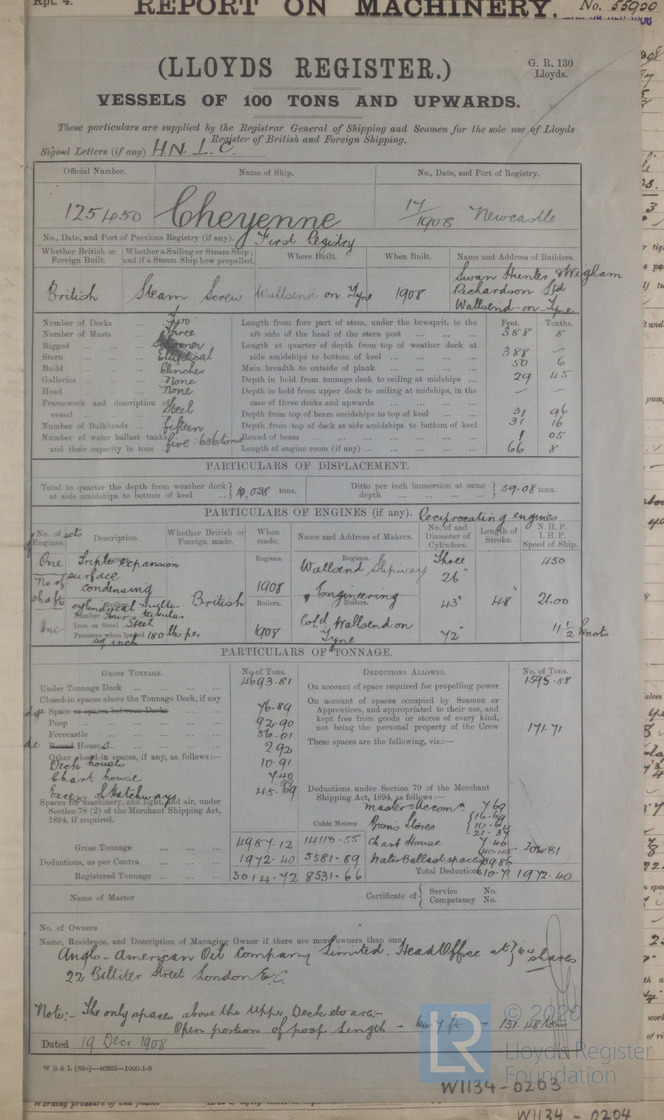 Rpt. 4.
REPORT ON MACHINERY. No. 55900
(LLOYDS REGISTER.)
G. R. 130
Lloyds.
VESSELS OF 100 TONS AND UPWARDS.
These particulars are supplied by the Registrar General of Shipping and Seamen for the sole use of Lloyds
Register of British and Foreign Shipping.
Signal Letters (if any) HNLC.
Official Number. Name of Ship. No., Date, and Port of Registry.
125450 Cheyenne 17/1908 Newcastle
No., Date, and Port of Previous Registry (if any). First Registry
Whether British or Foreign Built. Whether a Sailing or Steam Ship; and if a Steam Ship how propelled. Where Built. When Built. Name and Address of Builders.
British Steam Screw Wallsend on Tyne 1908 Swan Hunter & Wigham
Richardson Ltd
Wallsend-on-Tyne
Feet. Tenths.
Number of Decks Two Length from fore part of stem, under the bowsprit, to the
Number of Masts Three aft side of the head of the stern post 388 8
Rigged Schooner Length at quarter of depth from top of weather deck at
Stern Elliptical side amidships to bottom of keel 388 —
Build Clincher Main breadth to outside of plank 50 6
Galleries None Depth in hold from tonnage deck to ceiling at midships 29 45
Head None Depth in hold from upper deck to ceiling at midships, in the
case of three decks and upwards — —
Framework and description of vessel Steel Depth from top of beam amidships to top of keel 31 96
Number of Bulkheads fifteen Depth from top of deck at side amidships to bottom of keel 31 16
Number of water ballast tanks, and their capacity in tons five: 636 tons Round of beam 1 05
Length of engine room (if any) 66 8
PARTICULARS OF DISPLACEMENT.
Total to quarter the depth from weather deck at side amidships to bottom of keel 10,038 tons. Ditto per inch immersion at same depth 39.08 tons.
PARTICULARS OF ENGINES (if any). Reciprocating engines
No. of sets of Engines. Description. Whether British or Foreign made. When made. Name and Address of Makers. No. of and Diameter of Cylinders. Length of Stroke. N. H. P. I. H. P. Speed of Ship.
One Triple expansion Engines. Engines. Three 450
surface Wallsend Slipway 26"
No. of shafts condensing 1908 & Engineering
cylindrical multitubular British Boilers. Boilers. 43" 48" 2600
Number Four
One Iron or Steel Steel Cold. Wallsend on
Pressure when loaded 180 lbs per sq inch 1908 Tyne 72" 11 1/2 knots
PARTICULARS OF TONNAGE.
GROSS TONNAGE. No. of Tons. DEDUCTIONS ALLOWED. No. of Tons.
Under Tonnage Deck 4693.81 On account of space required for propelling power 1595.88
Closed-in spaces above the Tonnage Deck, if any
Space or spaces between Decks 76.89 On account of spaces occupied by Seamen or
Apprentices, and appropriated to their use, and
Poop 92.90 kept free from goods or stores of every kind,
Forecastle 56.01 not being the personal property of the Crew 171.71
Round House 2.92 These spaces are the following, viz.:—
Other closed-in spaces, if any, as follows:—
Deck houses 10.91
Chart house 7.40
Excess of Hatchways 45.69
Deductions under Section 79 of the Merchant
Shipping Act, 1894, as follows:—
Spaces for machinery, and light, and air, under
Section 78 (2) of the Merchant Shipping Act,
1894, if required.
Cubic Metres
Gross Tonnage 4987.12 14113.55 Chart House 7.40 204.81
Deductions, as per Contra 1972.40 5581.89 Water Ballast space
Registered Tonnage 3014.72 8531.66 Total Deductions 1972.40
Name of Master Certificate of { Service No.
Competency No.
No. of Owners
Name, Residence, and Description of Managing Owner if there are more owners than one
Anglo-American Oil Company Limited. Head Office at } 64 shares
22 Billiter Street London E.C.
Note:- The only spaces above the Upper Deck etc are:-
Open portion of poop Length
Dated 19 Decr 1908
© 2020
LR
Lloyd's Register
Foundation
W1134-0203
W1134-0204